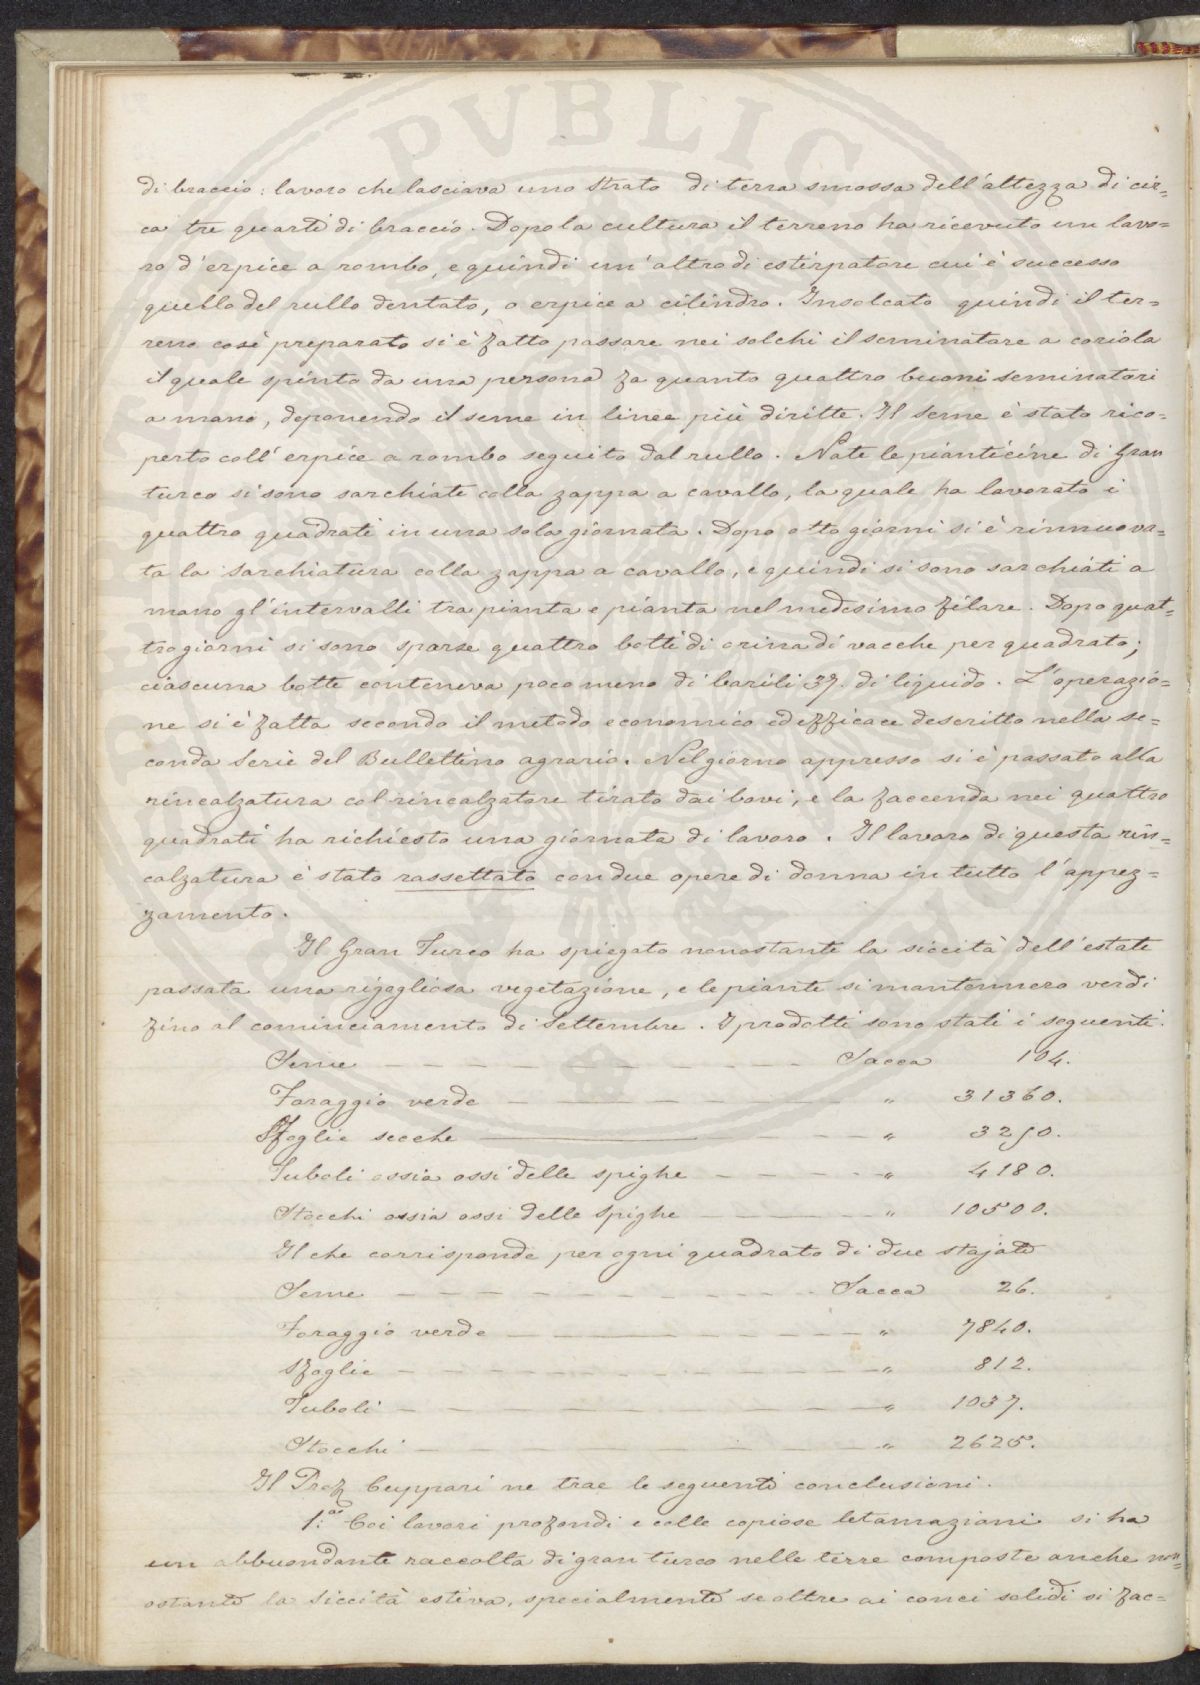 PVBLICA
di braccio; lavoro che lasciava uno strato di terra smossa dell'altezza di cir=
ca tre quarti di braccio. Dopo la cultura il terreno ha ricevuto un lavo=
ro d'erpice a rombo, e quindi un'altro di estirpatore cui è successo
quello del rullo dentato, o erpice a cilindro. Insolcato quindi il ter=
reno così preparato si è fatto passare nei solchi il seminatore a cariola
il quale spinto da una persona fa quanto quattro buoni seminatori
a mano, deponendo il seme in linee più diritte. Il seme è stato rico=
perto coll'erpice a rombo seguito dal rullo. Nate le pianticine di Gran
turco si sono sarchiate colla zappa a cavallo, la quale ha lavorato i
quattro quadrati in una sola giornata. Dopo otto giorni si è rinnuova=
ta la sarchiatura colla zappa a cavallo, e quindi si sono sarchiati a
mano gl'intervalli tra pianta e pianta nel medesimo filare. Dopo quat=
tro giorni si sono sparse quattro botti di orina di vacche per quadrato;
ciascuna botte conteneva poco meno di barili 37. di liquido. L'operazio=
ne si è fatta secondo il metodo economico ed efficace descritto nella se=
conda Serie del Bullettino agrario. Nel giorno appresso si è passato alla
rincalzatura col rincalzatore tirato dai bovi, e la faccenda nei quattro
quadrati ha richiesto una giornata di lavoro. Il lavoro di questa rin=
calzatura è stato rassettato con due opere di donna in tutto l'appez=
zamento.
Il Gran Turco ha spiegato nonostante la siccità dell'estate
passata una rigogliosa vegetazione, e le piante si mantennero verdi
fino al cominciamento di Settembre. I prodotti sono stati i seguenti.
Seme — — — Sacca 104.
Foraggio verde — — — " 31360.
Sfoglie secche — — — " 3250.
Tuboli ossia ossi delle spighe — — — " 4180.
Stocchi ossia ossi delle spighe — — — " 10500.
Il che corrisponde per ogni quadrato di due stajate
Seme — — — Sacca 26.
Foraggio verde — — — " 7840.
Sfoglie — — — " 812.
Tuboli — — — " 1037.
Stocchi — — — " 2625.
Il Prof Cuppari ne trae le seguenti conclusioni.
1.ª Coi lavori profondi e colle copiose letamazioni si ha
un abbuondante raccolta di gran turco nelle terre composte anche non=
ostante la siccità estiva, specialmente se oltre ai conci solidi si fac=